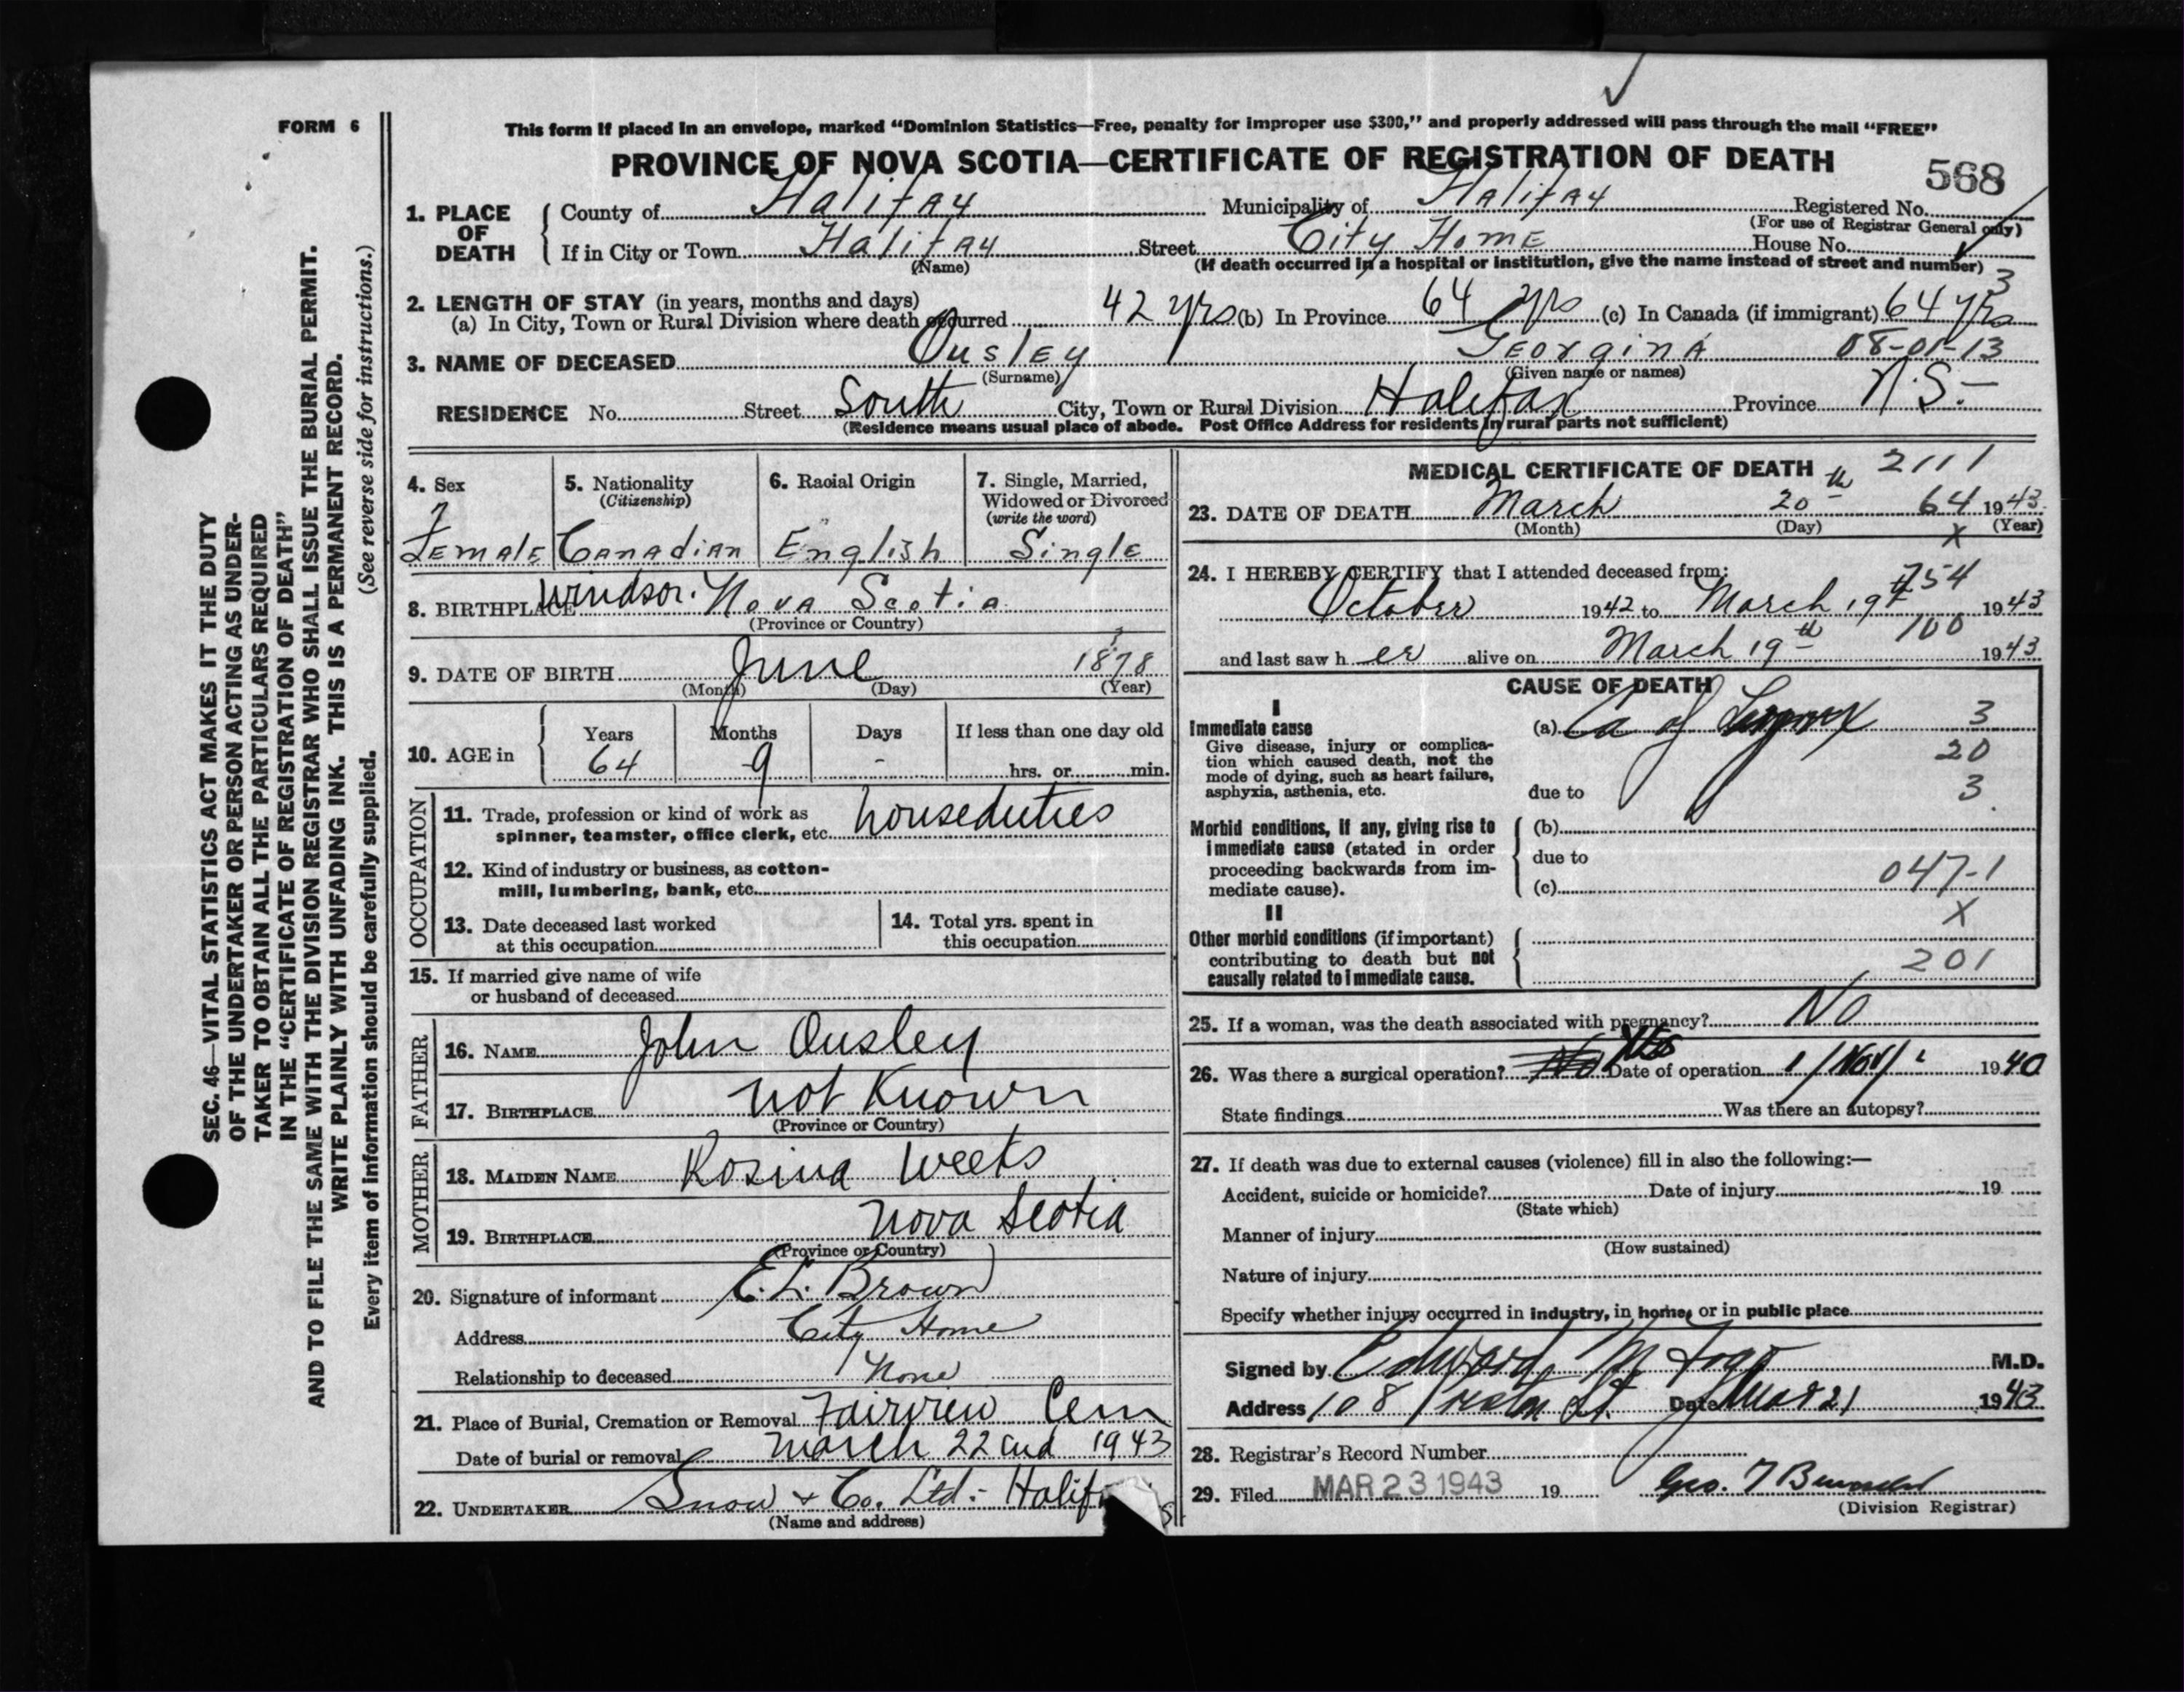 FORM 6
This form if placed in an envelope, marked “Dominion Statistics—Free, penalty for improper use $300,” and properly addressed will pass through the mail “FREE”
PROVINCE OF NOVA SCOTIA—CERTIFICATE OF REGISTRATION OF DEATH
568
1. PLACE OF DEATH
County of Halifax Municipality of Halifax Registered No.
(For use of Registrar General only)
If in City or Town Halifax Street City Home House No.
(Name) (If death occurred in a hospital or institution, give the name instead of street and number)
3
2. LENGTH OF STAY (in years, months and days)
(a) In City, Town or Rural Division where death occurred 42 yrs (b) In Province 64 yrs (c) In Canada (if immigrant) 64 yrs
3. NAME OF DECEASED Ousley Georgina 08-01-13
(Surname) (Given name or names)
RESIDENCE No. Street South City, Town or Rural Division Halifax Province N.S.-
(Residence means usual place of abode. Post Office Address for residents in rural parts not sufficient)
4. Sex
Female
5. Nationality
(Citizenship)
Canadian
6. Racial Origin
English
7. Single, Married,
Widowed or Divorced
(write the word)
Single
8. BIRTHPLACE Windsor. Nova Scotia
(Province or Country)
9. DATE OF BIRTH June 1878
(Month) (Day) (Year)
10. AGE in
Years Months Days If less than one day old
64 9 - hrs. or min.
OCCUPATION
11. Trade, profession or kind of work as
spinner, teamster, office clerk, etc. houseduties
12. Kind of industry or business, as cotton-
mill, lumbering, bank, etc.
13. Date deceased last worked
at this occupation
14. Total yrs. spent in
this occupation
15. If married give name of wife
or husband of deceased
FATHER
16. NAME John Ousley
17. BIRTHPLACE not Known
(Province or Country)
MOTHER
18. MAIDEN NAME Rosina Weeks
19. BIRTHPLACE Nova Scotia
(Province or Country)
20. Signature of informant E. L. Brown
Address City Home
Relationship to deceased None
21. Place of Burial, Cremation or Removal Fairview Cem
Date of burial or removal March 22nd 1943
22. UNDERTAKER Snow & Co. Ltd.-
(Name and address)
MEDICAL CERTIFICATE OF DEATH 2111
23. DATE OF DEATH March 20th 64 1943
(Month) (Day) (Year)
X
24. I HEREBY CERTIFY that I attended deceased from:
754
October 1942 to March 19th 1943
100
and last saw her alive on March 19th 1943
CAUSE OF DEATH
I
Immediate cause
Give disease, injury or complica-
tion which caused death, not the
mode of dying, such as heart failure,
asphyxia, asthenia, etc.
(a) Ca of 3
20
due to 3
Morbid conditions, if any, giving rise to
immediate cause (stated in order
proceeding backwards from im-
mediate cause).
(b)
due to
(c) 047-1
II
X
Other morbid conditions (if important)
contributing to death but not
causally related to immediate cause.
201
25. If a woman, was the death associated with pregnancy? No
26. Was there a surgical operation? No Yes Date of operation 1/Nov/ 1940
State findings Was there an autopsy?
27. If death was due to external causes (violence) fill in also the following:—
Accident, suicide or homicide? Date of injury 19
(State which)
Manner of injury
(How sustained)
Nature of injury
Specify whether injury occurred in industry, in home, or in public place
Signed by Edward M M.D.
Address 108 St. Date Mar 21 1943
28. Registrar's Record Number
29. Filed MAR 23 1943 19 Geo. T
(Division Registrar)
SEC. 46—VITAL STATISTICS ACT MAKES IT THE DUTY
OF THE UNDERTAKER OR PERSON ACTING AS UNDER-
TAKER TO OBTAIN ALL THE PARTICULARS REQUIRED
IN THE “CERTIFICATE OF REGISTRATION OF DEATH”
AND TO FILE THE SAME WITH THE DIVISION REGISTRAR WHO SHALL ISSUE THE BURIAL PERMIT.
WRITE PLAINLY WITH UNFADING INK. THIS IS A PERMANENT RECORD.
(See reverse side for instructions.)
Every item of information should be carefully supplied.